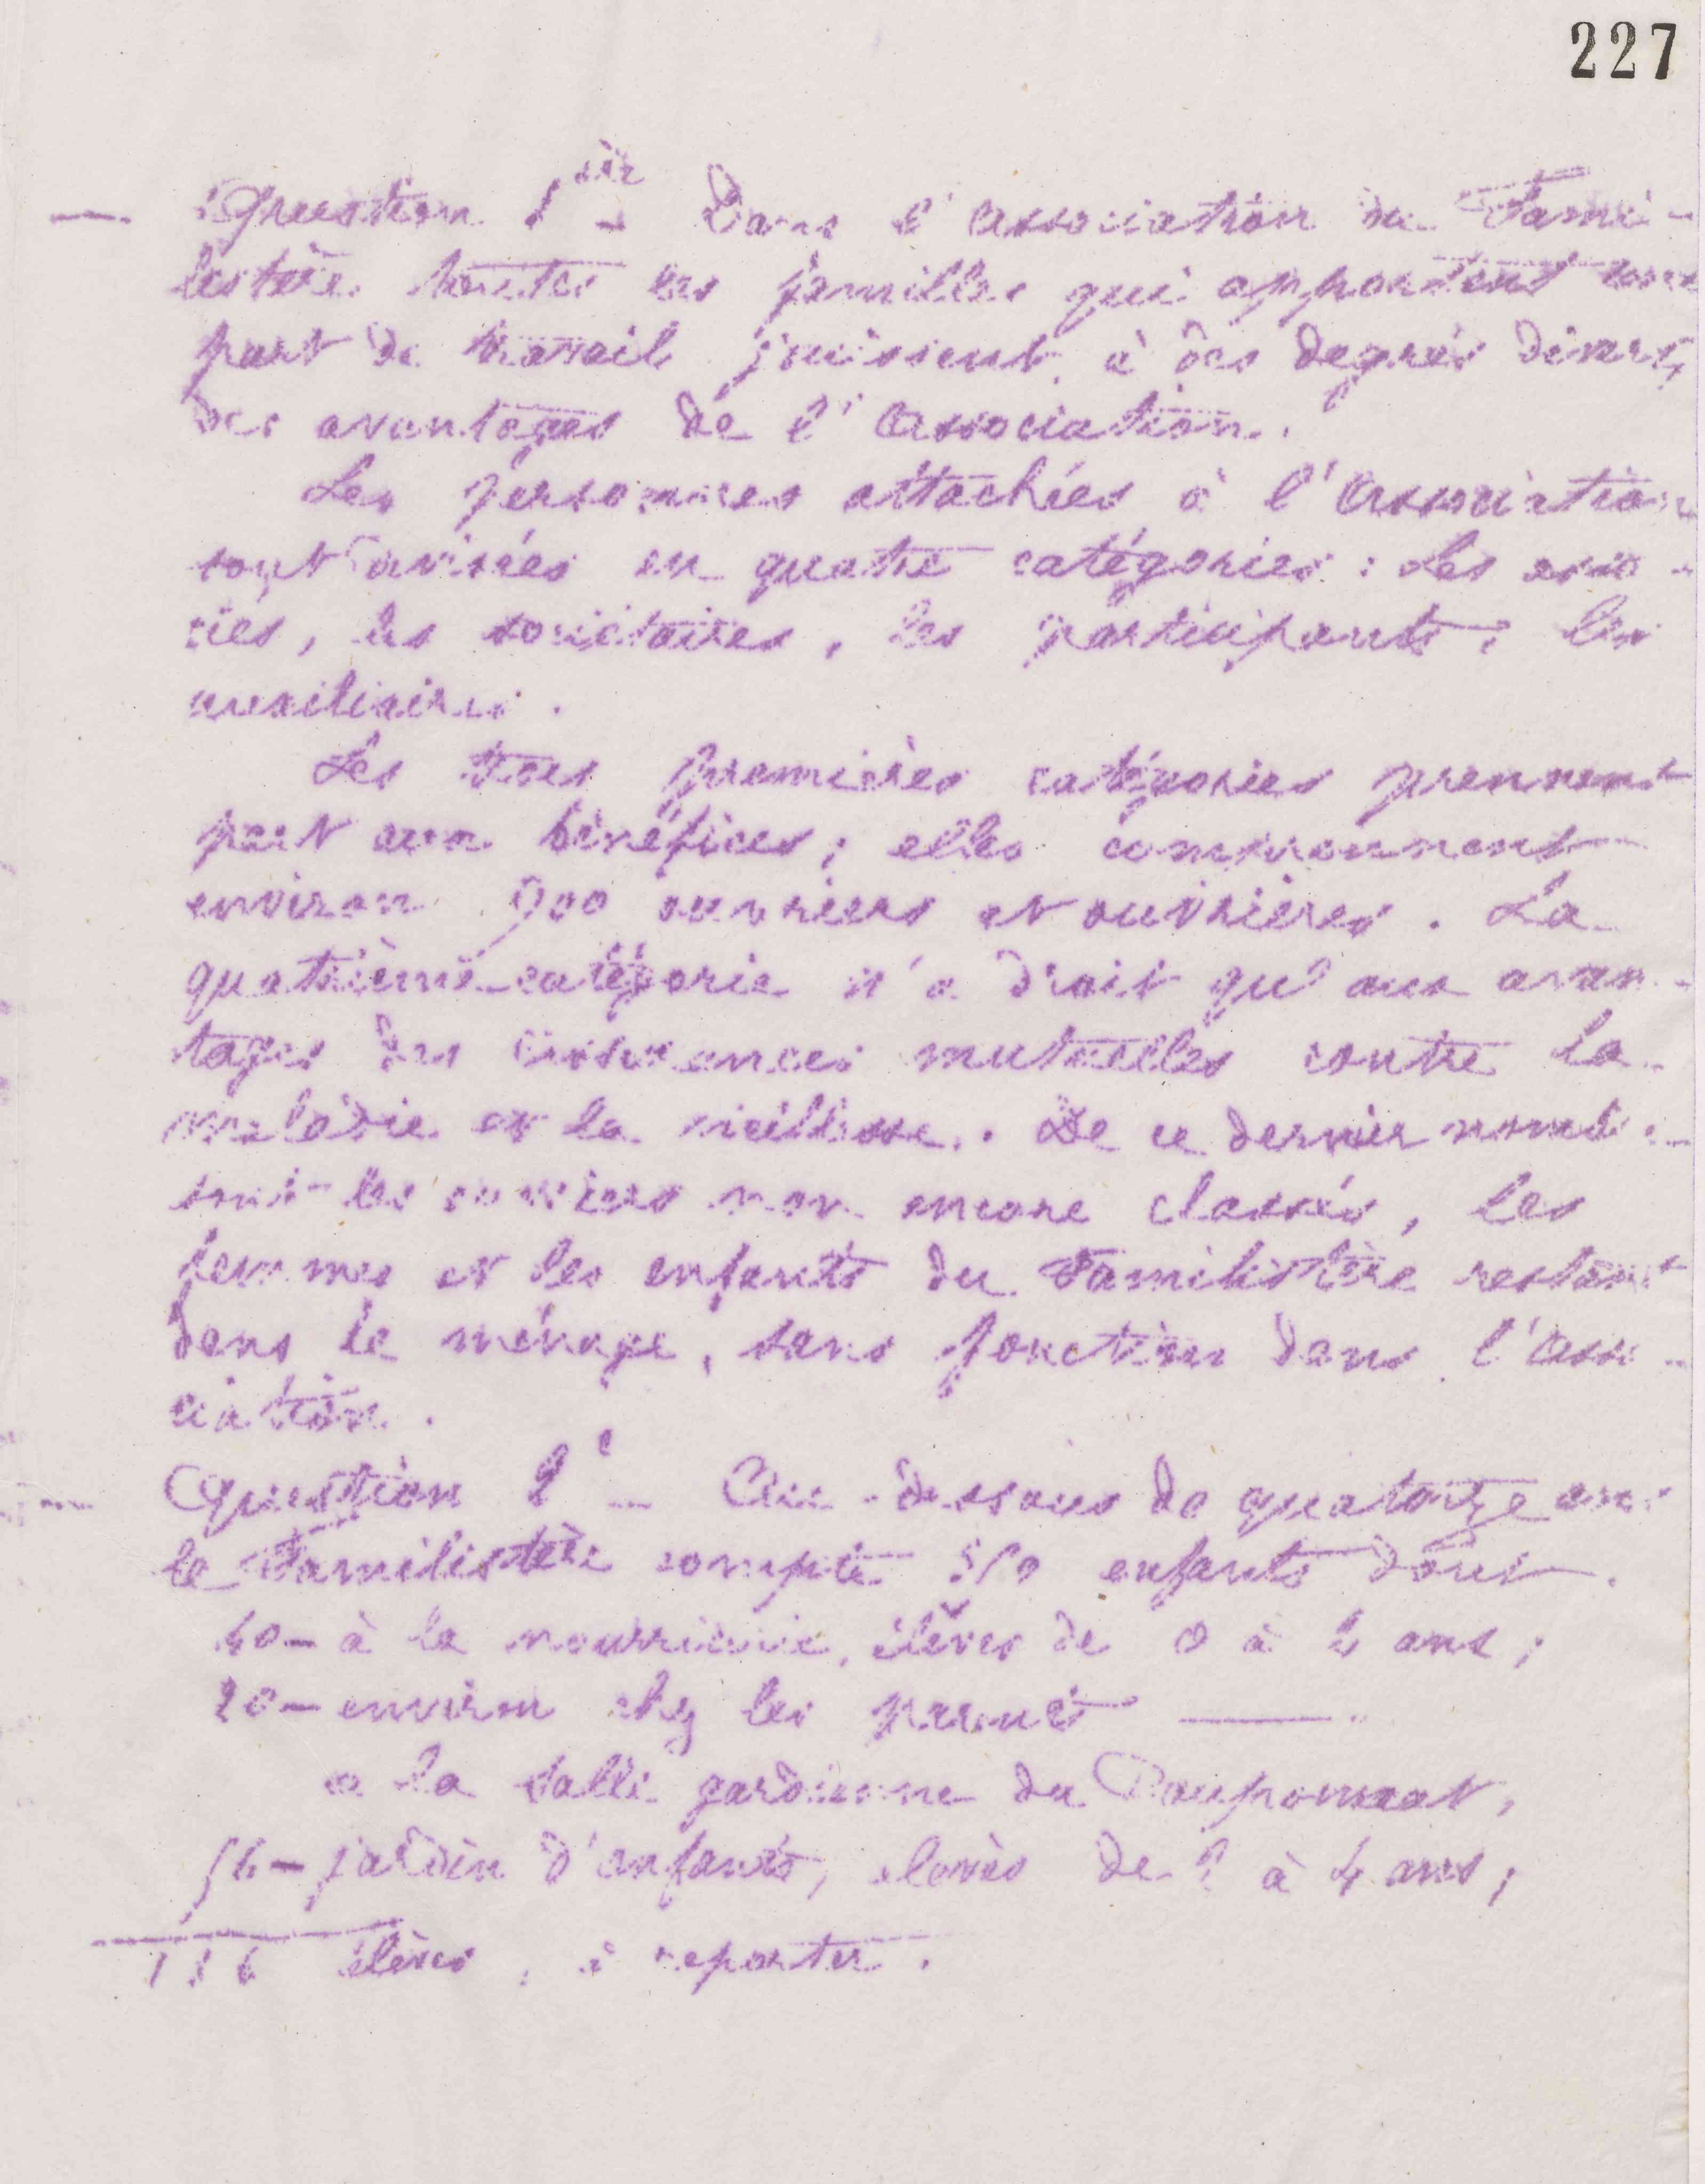 227
— Question 1ère — Dans l'Association du Fami-
listère toutes les familles qui apportent leur
part de travail jouissent, à des degrés divers,
des avantages de l'Association.
Les personnes attachées à l'Association
sont divisées en quatre catégories : Les asso-
ciés, les sociétaires, les participants, les
auxiliaires.
Les trois premières catégories prennent
part aux bénéfices ; elles comprennent
environ 900 ouvriers et ouvrières. La
quatrième catégorie n'a droit qu'aux avan-
tages des assurances mutuelles contre la
maladie et la vieillesse. De ce dernier nombre
sont les ouvriers non encore classés, les
femmes et les enfants du Familistère restant
dans le ménage, sans fonction dans l'asso-
ciation.
— Question 2e — Au-dessous de quatorze ans
le Familistère compte enfants dont
40 — à la nourricerie, élèves de 0 à 2 ans ;
20 — environ chez les parents —
à la salle gardienne du Pouponnat,
56 — jardin d'enfants, élevés de 2 à 4 ans ;
116 élèves, à reporter.